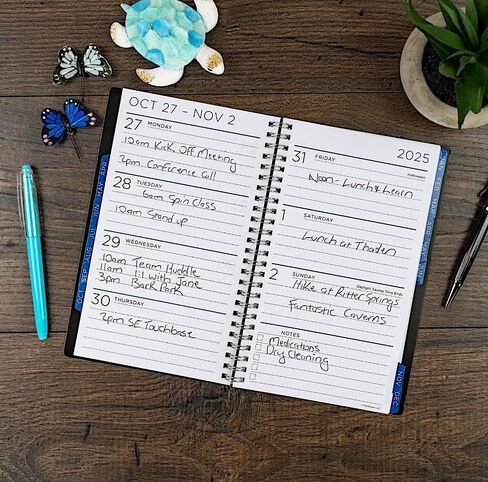 OCT 27 - NOV 2
27 MONDAY
10am Kick Off Meeting
2pm Conference Call
28 TUESDAY
6am Spin Class
10am Stand up
29 WEDNESDAY
10am Team Huddle
11am 1:1 with Jane
3pm Back Park
30 THURSDAY
2pm SE Touchbase
2025
31 FRIDAY
Halloween
Noon - Lunch & Learn
1 SATURDAY
Lunch at Thaden
2 SUNDAY
Daylight Saving Time Ends
Hike at Ritter Springs
Fantastic Caverns
NOTES
Medications
Dry Cleaning
APR
MAY
JUN
JUL
AUG
SEP
OCT
NOV
DEC